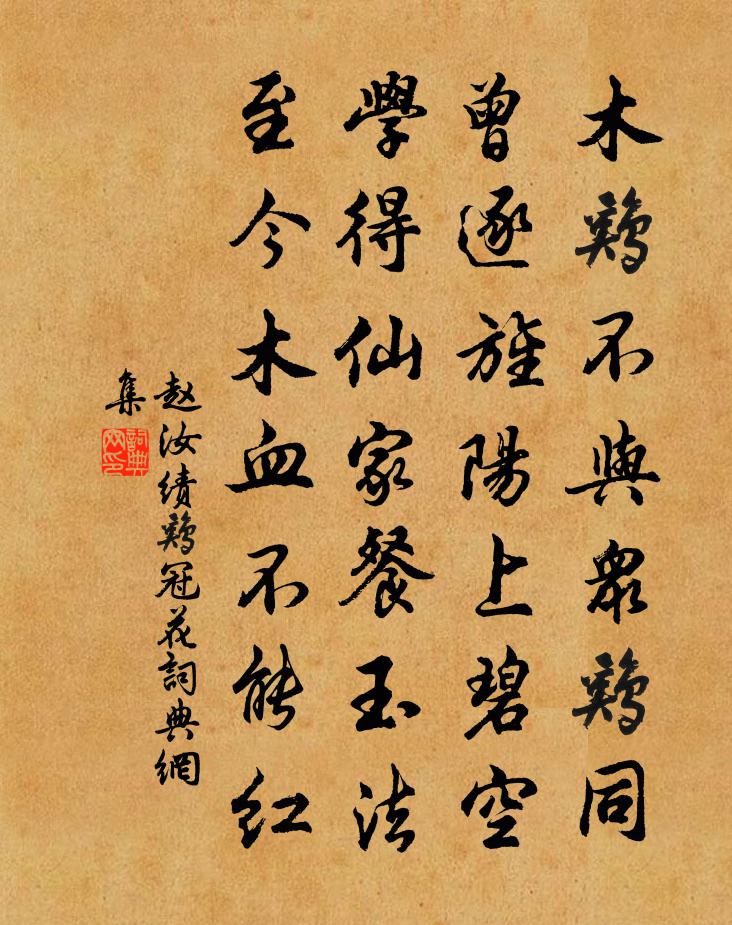 木鷄不與衆鷄同
曾逐旌陽上碧空
學得仙家餐玉法
至今木血不能紅
赵汝績鷄冠花詞典網
集
詞典网印